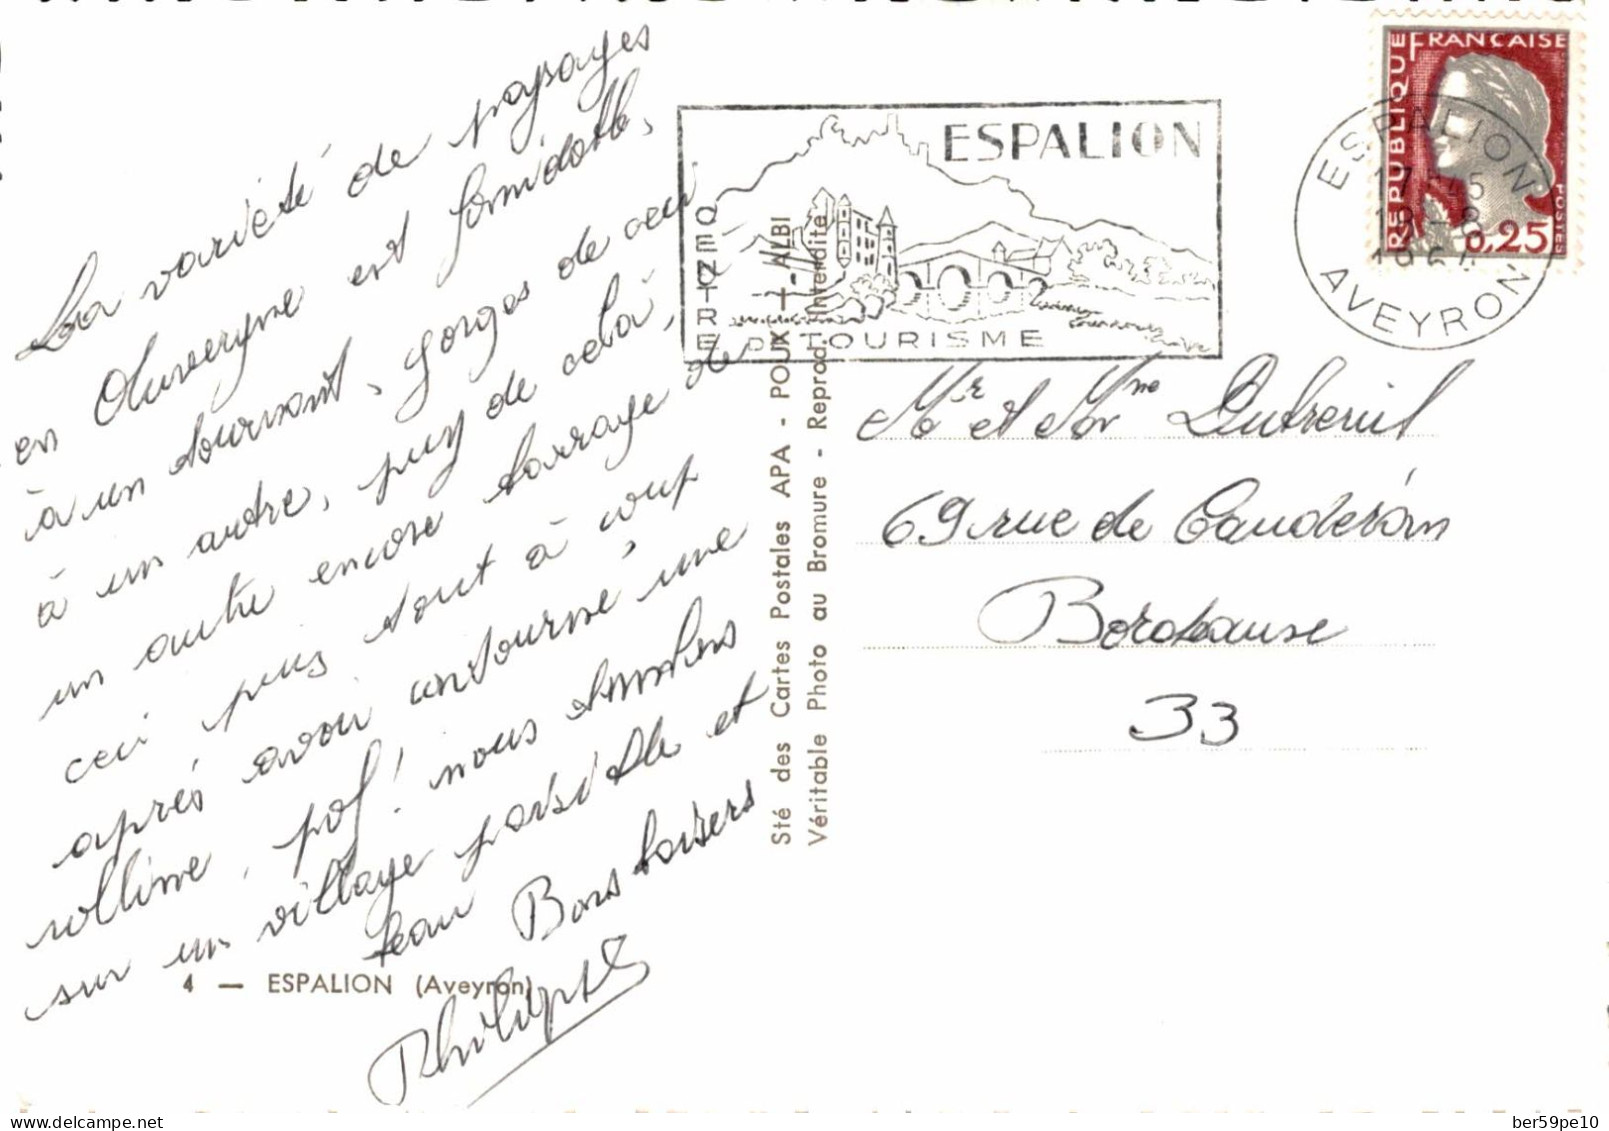 La variété de paysages
en Auvergne est formidable,
à un tournant, gorges de ceci
à un autre, puy de cela,
un autre encore barrage de
ceci puis tout à coup
après avoir contourné une
colline, pof! nous tombons
sur un village paisible et
beau Bons baisers
Philippe
4 — ESPALION (Aveyron)
Sté des Cartes Postales APA - POUX - ALBI
Véritable Photo au Bromure - Reprod. Interdite
ESPALION
CENTRE
DE TOURISME
RÉPUBLIQUE FRANÇAISE
POSTES
0,25
ESPALION
18-8
AVEYRON
Mr et Mme Dutreuil
69 rue de Caudéran
Bordeaux
33
ber59pe10